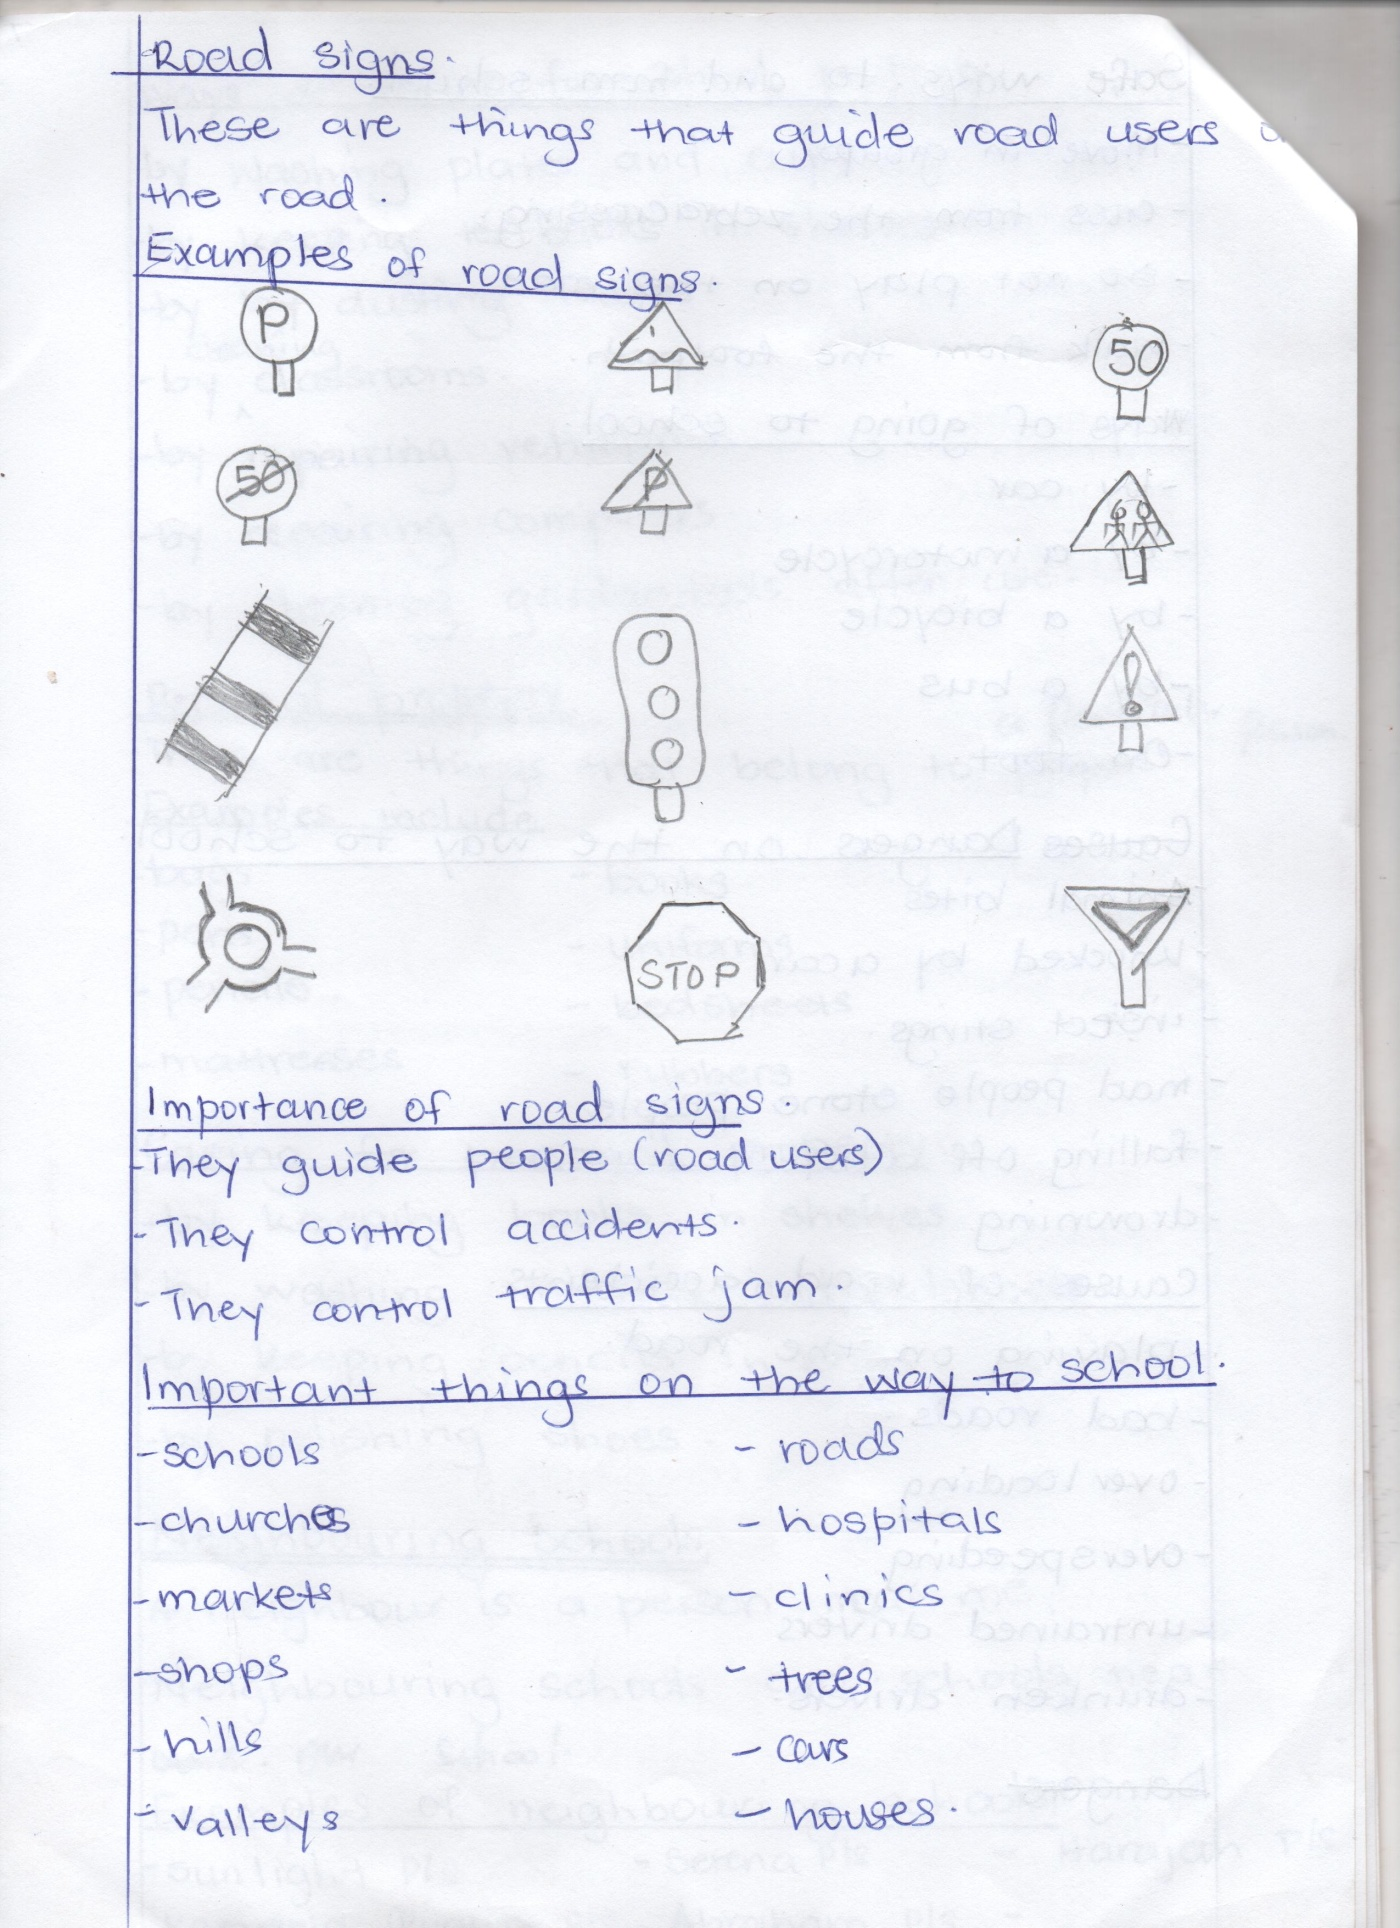 Road signs.
These are things that guide road users
the road.
Examples of road signs.
P
50
50
P
!
STOP
Importance of road signs.
-They guide people (road users)
-They control accidents.
-They control traffic jam.
Important things on the way to school.
-schools - roads
-churches - hospitals
-markets - clinics
-shops - trees
-hills - cars
-valleys - houses.